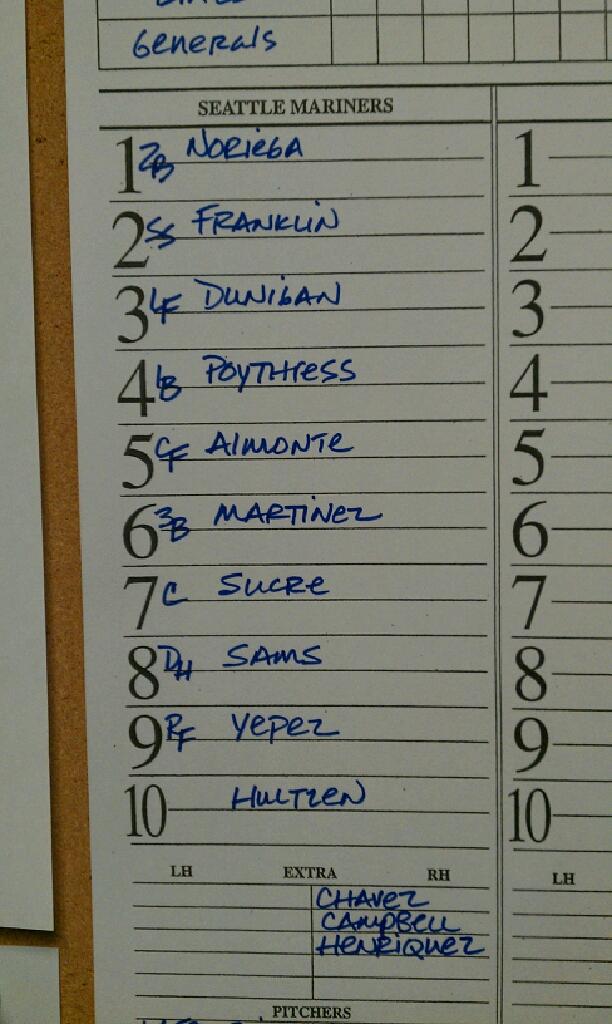 Generals
SEATTLE MARINERS
1 2B NORIEGA 1
2 SS FRANKLIN 2
3 LF DUNIGAN 3
4 1B POYTHRESS 4
5 CF ALMONTE 5
6 3B MARTINEZ 6
7 C SUCRE 7
8 DH SAMS 8
9 RF YEPEZ 9
10 HULTZEN 10
LH EXTRA RH LH
CHAVEZ
CAMPBELL
HENRIQUEZ
PITCHERS